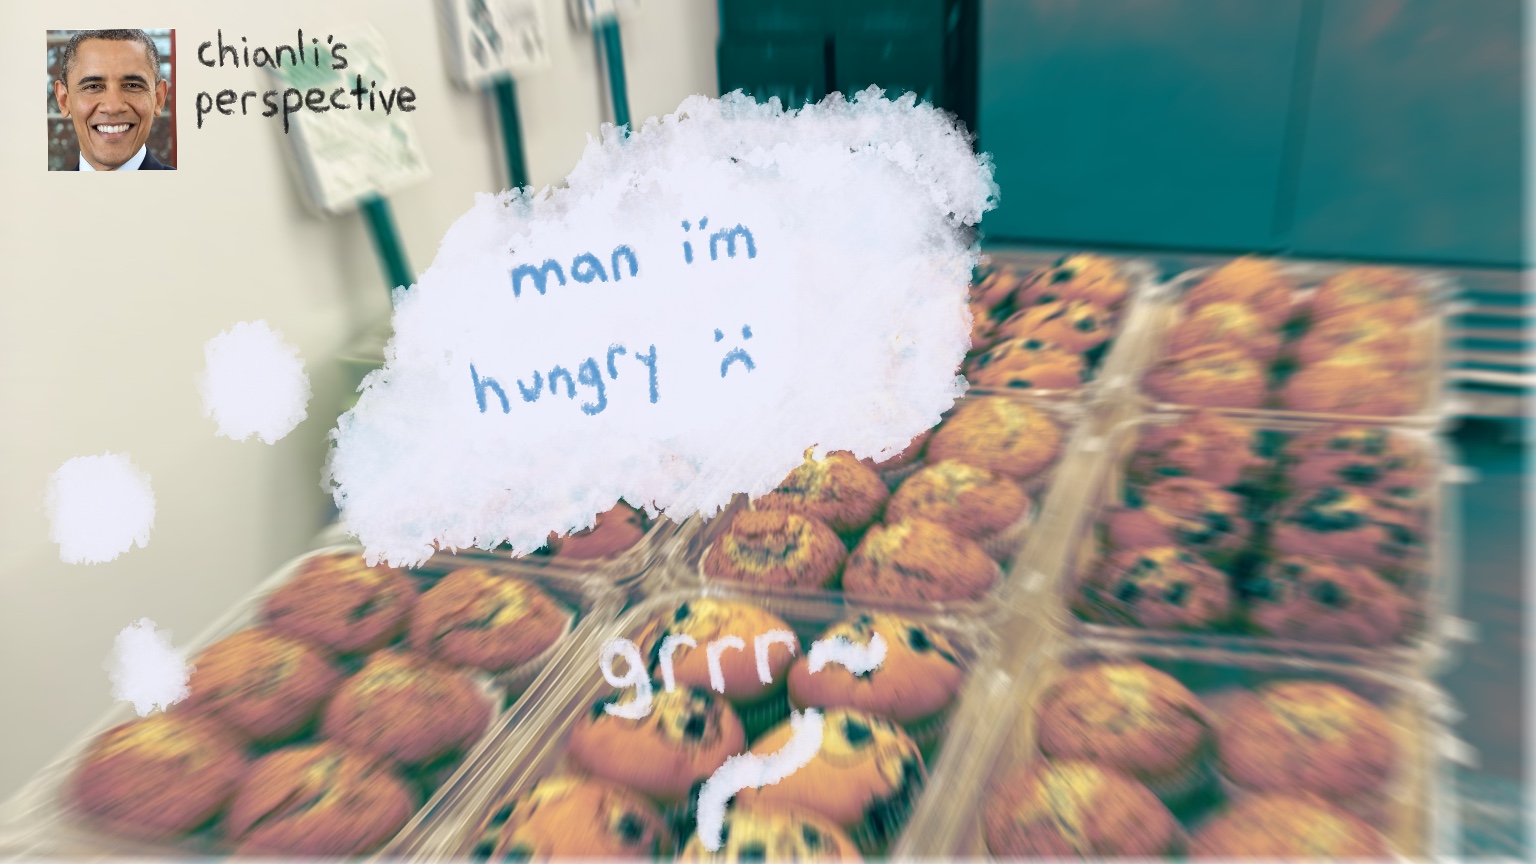 chianli's
perspective
man i'm
hungry :(
grrr~